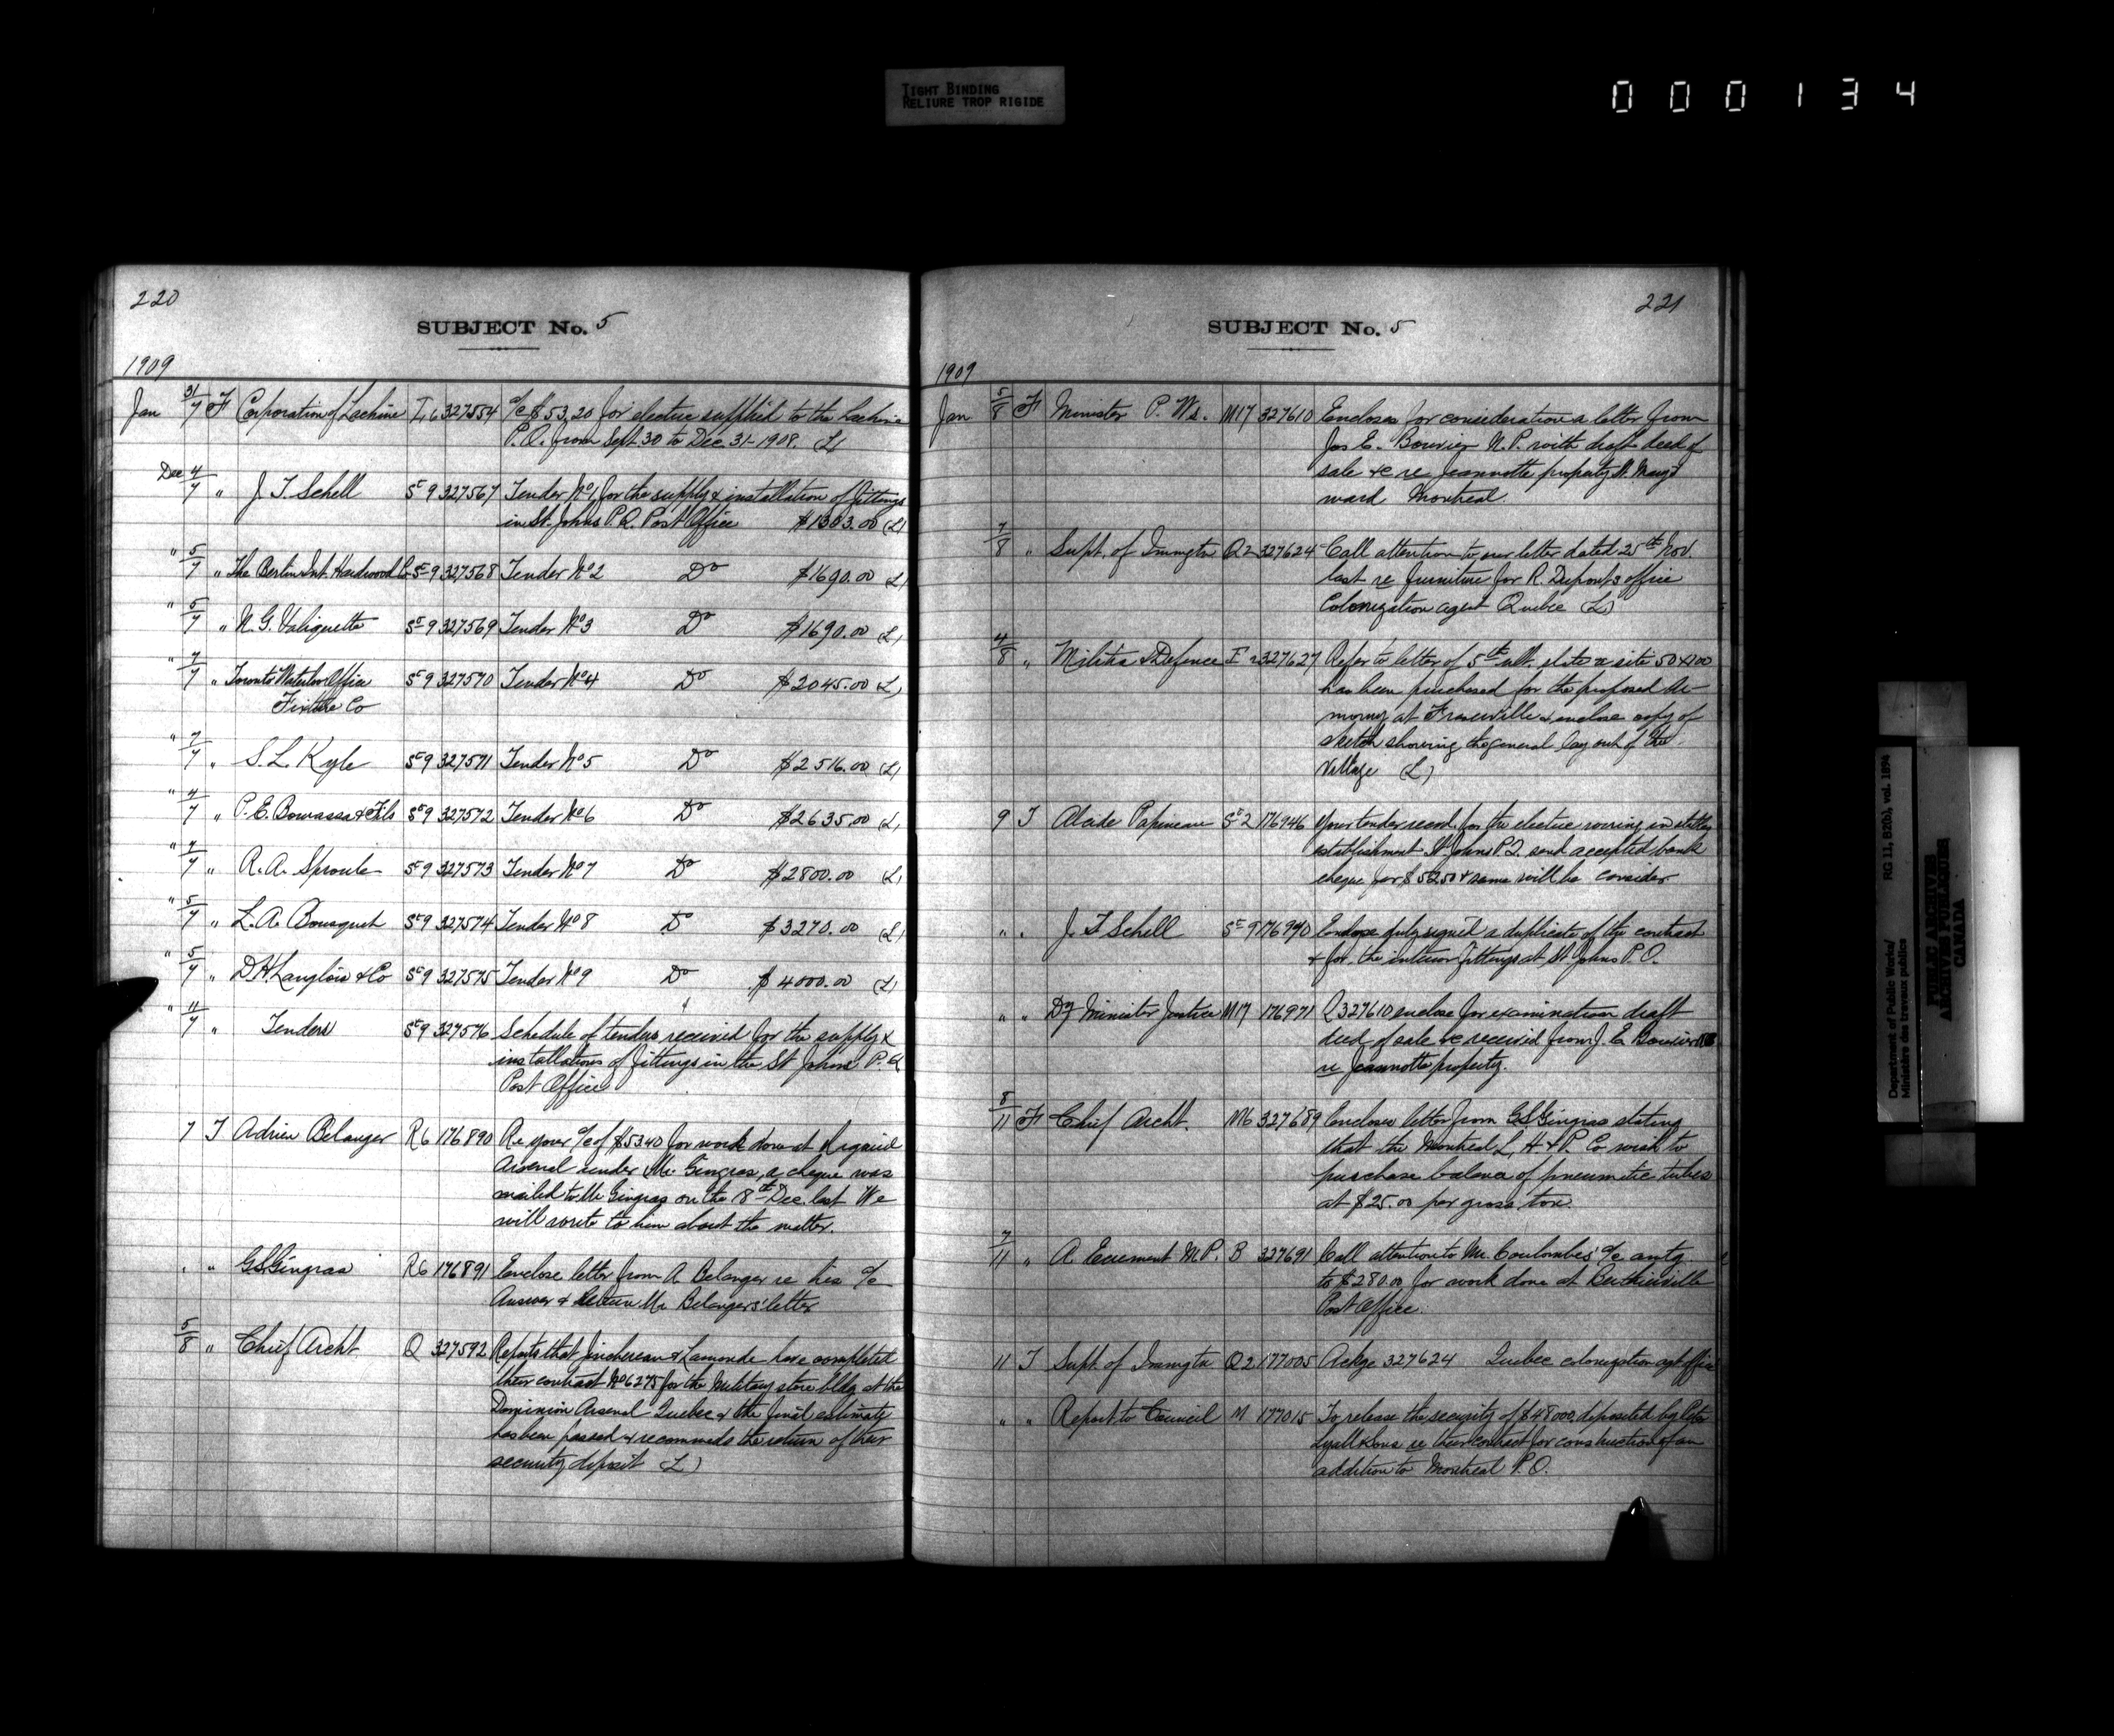 TIGHT BINDING
RELIURE TROP RIGIDE
000134
220
SUBJECT No. 5
1909
Jan 31/7 F Corporation of Lachine L 6 327554 a/c $53.20 for electric supplied to the Lachine
P.O. from Sept. 30 to Dec 31-1908. (L)
Dec 4/7 " J. T. Schell St 9 327567 Tender No 1 for the supply & installation of fittings
in St. Johns P.Q. Post Office $1303.00 (L)
" 5/7 " The Berlin Int. Hardwood Co St 9 327568 Tender No 2 Do $1690.00 (L)
" 5/7 " N. G. Valiquette St 9 327569 Tender No 3 Do $1690.00 (L)
" 7/7 " Toronto Waterloo Office St 9 327570 Tender No 4 Do $2045.00 (L)
Fixture Co
" 7/7 " S. L. Kyle St 9 327571 Tender No 5 Do $2516.00 (L)
" 4/7 " P. E. Bourassa & Fils St 9 327572 Tender No 6 Do $2635.00 (L)
" 7/7 " R. A. Sproule St 9 327573 Tender No 7 Do $2800.00 (L)
" 5/7 " L. A. Bousquet St 9 327574 Tender No 8 Do $3270.00 (L)
" 5/7 " D. H. Langlois & Co St 9 327575 Tender No 9 Do $4000.00 (L)
" 11/7 " Tenders St 9 327576 Schedule of tenders received for the supply &
installations of fittings in the St Johns P.Q
Post Office
7 T Adrien Belanger R6 176890 Re your a/c of $53.40 for work done at
Arsenal under Mr. Gingras, a cheque was
mailed to Mr Gingras on the 18th Dec. last We
will write to him about the matter.
" " G. S. Gingras R6 176891 Enclose letter from A Belanger re his a/c
Answer & Return Mr Belangers' letter
5/8 " Chief Archt Q 327592 Reports that Jinchereau & Lamonde have completed
their contract No 6275 for the Military store bldg at the
Dominion Arsenal Quebec & the final estimate
has been passed & recommeds the return of their
security deposit (L)
221
SUBJECT No. 5
1909
Jan 5/8 F Minister P. Ws. M17 327610 Encloses for consideration a letter from
Jos E. Bouvier N.P. with draft deed of
sale &c re Jeannotte property St. Mary's
ward Montreal.
7/8 " Supt. of Immigtn Q2 327624 Call attention to our letter dated 25th Nov.
last re furniture for R. Dupont's office
Colonization agent Quebec (L)
4/8 " Militia & Defence F 2 327627 Refer to letter of 5th ult. state a site 50x100
has been purchased for the proposed Ar-
moury at Fraserville & enclose copy of
sketch showing the general lay out of the
Village (L)
9 T Alcide Papineau St 2 176946 Your tender recd. for the electric wiring in
establishment St Johns P.Q. send accepted bank
cheque for $52.50 & same will be consider
" " J. T Schell St 9 176970 Enclose duly signed a duplicate of the contract
& for the interior fittings at St. Johns P.O.
" " Dy Minister Justice M17 176971 R 327610 enclose for examination draft
deed of sale &c received from J. E Bouvier
re Jeannotte property.
8/11 F Chief Archt. M6 327689 Encloses letter from G S Gingras stating
that the Montreal L, H. & P. Co wish to
purchase balance of pneumatic tubes
at $25.00 per gross ton.
7/11 " A. Ecrement M.P. B 327691 Call attention to Mr. Coulombes' a/c amtg
to $280.00 for work done at Berthierville
Post Office.
11 T Supt. of Immigtn Q2 177005 Ackge 327624 Quebec colonization agt office
" " Report to Council M 177015 To release the security of $48000 deposited by Peter
Lyall & Sons re their contract for construction of an
addition to Montreal P.O.
Department of Public Works/ RG 11, B2(b), vol. 1894
Ministère des travaux publics
PUBLIC ARCHIVES
ARCHIVES PUBLIQUES
CANADA